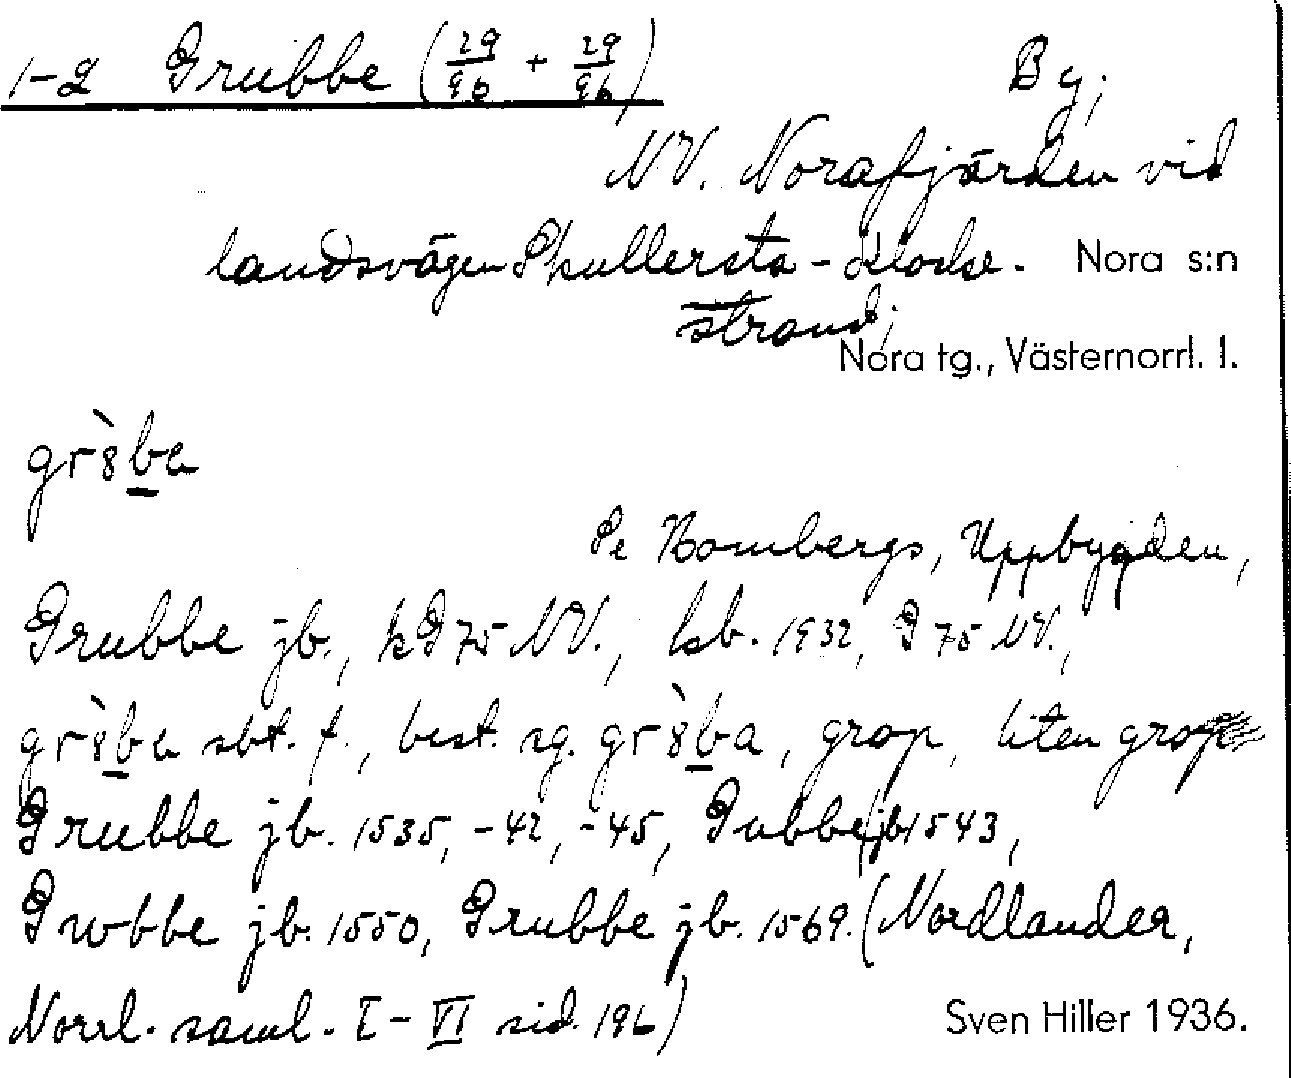 1-2 Grubbe (29/96 + 29/96) By;
NV. Norafjärden vid
landsvägen Skullersta - Klocke- Nora s:n
strand;
Nora tg., Västernorrl. l.
grò̱ba
Se Bombergs, Uppbygden,
Grubbe jb., kG 75 NV., lsb. 1932, G 75 NV.,
sbt. f., best. sg. , grop, liten grop
Grubbe jb. 1535, -42, -45, Gubbe (jb 1543,
Grwbbe jb. 1550, Grubbe jb. 1569. (Nordlander,
Norrl. saml. I - VI sid. 196)
Sven Hiller 1936.